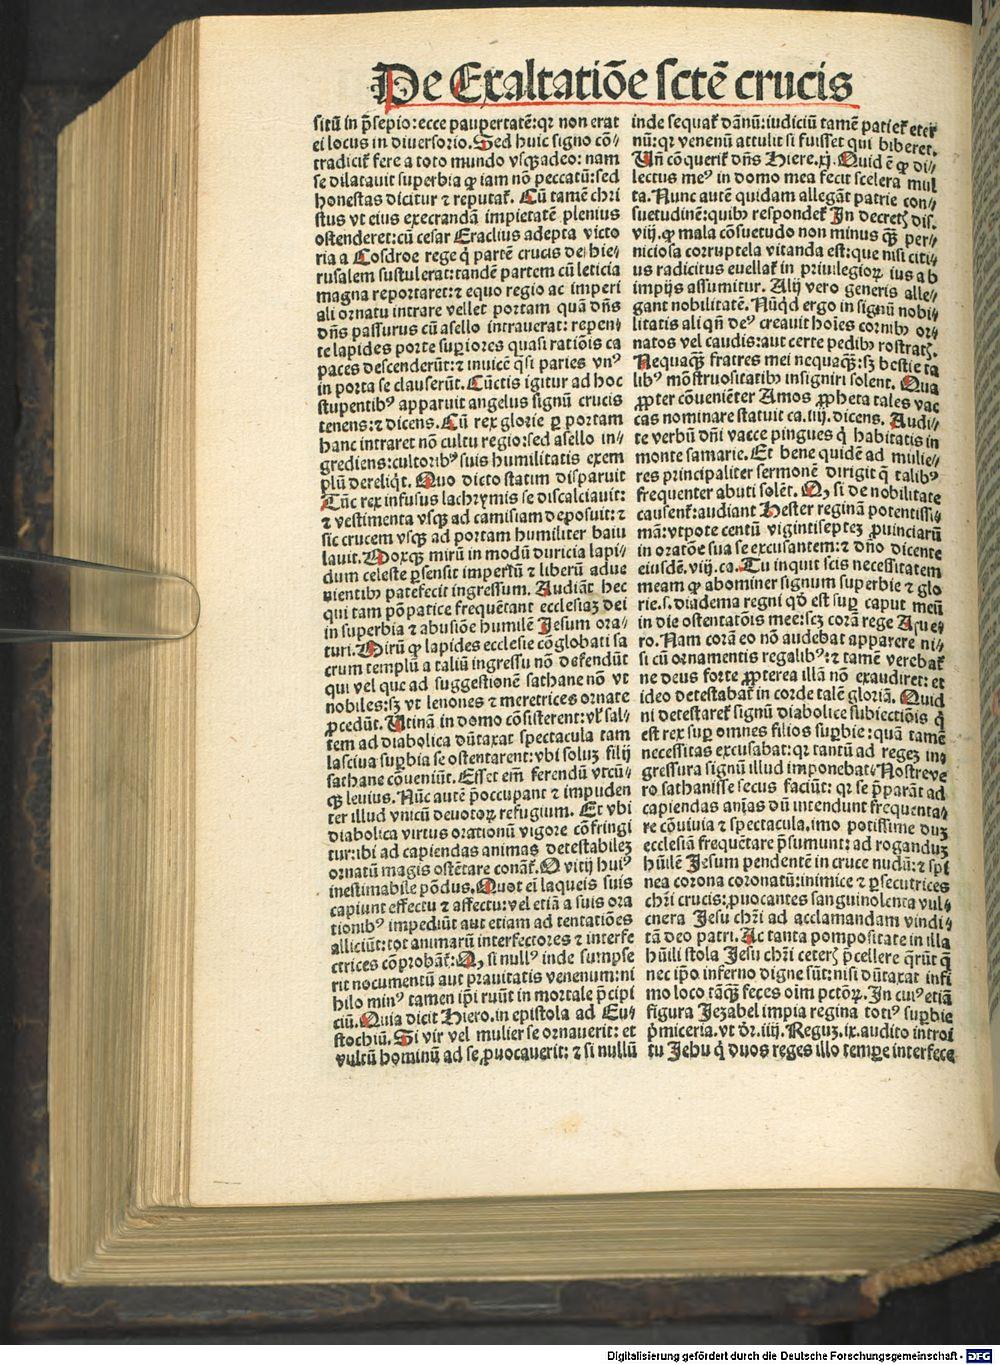 De Exaltatiõe sctẽ crucis
situ͂ in p̃sepio: ecce paupertatẽ: qꝛ non erat
ei locus in diuersorio. Sed huic signo cõ⸗
tradicit᷑ fere a toto mundo vsqꝫ adeo: nam
se dilatauit superbia ꝙ iam nõ peccatũ: sed
honestas dicitur ⁊ reputat᷑. Cũ tamẽ chri
stus vt eius execrandã impietatẽ plenius
ostenderet: cũ cesar Eraclius adepta victo
ria a Cosdroe rege q̇ partẽ crucis de hie⸗
rusalem sustulerat: tandẽ partem cũ leticia
magna reportaret: ⁊ equo regio ac imperi
ali ornatu intrare vellet portam quã dñs
dñs passurus cũ asello intrauerat: repen⸗
te lapides porte suꝑiores quasi ratiõis ca
paces descenderũt: ⁊ inuicẽ q̃si paries vnꝰ
in porta se clauserũt. Cũctis igitur ad hoc
stupentibꝰ apparuit angelus signũ crucis
tenens: ⁊ dicens. Cũ rex glorie ꝑ portam
hanc intraret nõ cultu regio: sed asello in⸗
grediens: cultoribꝰ suis humilitatis exem
plũ dereliq̇t. Quo dicto statim disparuit
Tũc rex infusus lachrymis se discalciauit:
⁊ vestimenta vsqꝫ ad camisiam deposuit: ⁊
sic crucem vsqꝫ ad portam humiliter baiu
lauit. Moxqꝫ mirũ in modũ duricia lapi⸗
dum celeste ꝑsensit imperiũ ⁊ liberũ adue
nientibꝫ patefecit ingressum. Audiãt hec
qui tam põpatice frequẽtant ecclesiaꝫ dei
in superbia ⁊ abusiõe humilẽ Jesum ora⸗
turi. Mirũ ꝙ lapides ecclesie cõglobati sa
crum templũ a taliũ ingressu nõ defendũt
qui vel que ad suggestionẽ sathane nõ vt
nobiles: sꝫ vt lenones ⁊ meretrices ornate
ꝓcedũt. Utinã in domo cõsisterent: vl̾ sal⸗
tem ad diabolica dũtaxat spectacula tam
lasciua suꝑbia se ostentarent: vbi soluꝫ filij
sathane cõueniũt. Esset em̃ ferendũ vtcũ⸗
qꝫ leuius. Nũc autẽ p̃occupant ⁊ impuden
ter illud vnicũ deuotoꝝ refugium. Et vbi
diabolica virtus orationũ vigore cõfringi
tur: ibi ad capiendas animas detestabileꝫ
ornatũ magis ostẽtare conãt᷑. O vitij huiꝰ
inestimabile põdus. Quot eĩ laqueis suis
capiunt effectu ⁊ affectu: vel etiã a suis ora
tionibꝰ impediũt aut etiam ad tentatiões
alliciũt: tot animarũ interfectores ⁊ interfe
ctrices cõprobãt᷑: Q, si nullꝰ inde sumpse
rit nocumentũ aut prauitatis venenum: ni
hilo minꝰ tamen ip̃i ruũt in mortale p̃cipi
ciũ. Quia dicit Hiero. in epistola ad Eu⸗
stochiũ. Si vir vel mulier se ornauerit: et
vultũ hominũ ad se ꝓuocauerit: ⁊ si nullũ
inde sequat᷑ dãnũ: iudiciũ tamẽ patiet᷑ eter
nũ: qꝛ venenũ attulit si fuisset qui biberet.
Uñ cõquerit᷑ dñs Hiere. xj. Quid ẽ ꝙ di⸗
lectus meꝰ in domo mea fecit scelera mul
ta. Nunc autẽ quidam allegãt patrie con⸗
suetudinẽ: quibꝫ respondet᷑ In decretꝭ dis.
viij. ꝙ mala cõsuetudo non minus qꝫ̃ per⸗
niciosa corruptela vitanda est: que nisi citi⸗
us radicitus euellat᷑ in priuilegioꝝ ius ab
impijs assumitur. Alij vero generis alle⸗
gant nobilitatẽ. Nũq̇d ergo in signũ nobi⸗
litatis ali qñ deꝰ creauit hoĩes cornibꝫ or⸗
natos vel caudis: aut certe pedibꝫ rostratꝭ.
Nequaqꝫ̃ fratres mei nequaqꝫ̃: sꝫ bestie ta
libꝰ mõstruositatibꝫ insigniri solent. Qua
ꝓpter cõueniẽter Amos ꝓpheta tales vac
cas nominare statuit ca. iiij. dicens. Audi⸗
te verbũ dñi vacce pingues q̇ habitatis in
monte samarie. Et bene quidẽ ad mulie⸗
res principaliter sermonẽ dirigit q̃ talibꝰ
frequenter abuti solẽt. Q, si de nobilitate
causent᷑: audiant Hester reginã potentissi⸗
mã: vtpote centũ vigintisepteꝫ ꝓuinciarũ
in oratõe sua se excusantem: ⁊ dño dicente
eiusdẽ. viij. ca. Tu inquit scis necessitatem
meam ꝙ abominer signum superbie ⁊ glo
rie. s. diadema regni qḋ est suꝑ caput meũ
in die ostentatõis mee: scꝫ corã rege Asue⸗
ro. Nam corã eo nõ audebat apparere ni⸗
si cũ ornamentis regalibꝰ: ⁊ tamẽ verebat᷑
ne deus forte ꝓpterea illã nõ exaudiret: et
ideo detestabat᷑ in corde talẽ gloriã. Quid
ni detestaret᷑ signũ diabolice subiectiõis q̇
est rex suꝑ omnes filios suꝑbie: quã tamẽ
necessitas excusabat: qꝛ tantũ ad regeꝫ in⸗
gressura signũ illud imponebat. Nostre ve
ro sathanisse secus faciũt: qꝛ se p̃parãt ad
capiendas aĩas dũ intendunt frequenta⸗
re cõuiuia ⁊ spectacula. imo potissime duꝫ
ecclesiã frequẽtare p̃sumunt: ad roganduꝫ
hũilẽ Jesum pendentẽ in cruce nudũ: ⁊ spi
nea corona coronatũ: inimice ⁊ ꝑsecutrices
chr̃i crucis: ꝓuocantes sanguinolenta vul⸗
cnera Jesu chr̃i ad acclamandam vindi⸗
tã deo patri. Ac tanta pompositate in illa
hũili stola Jesu chr̃i ceterꝭ p̃cellere q̃rũt q̃
nec ip̃o inferno digne sũt: nisi dũtaxat infi
mo loco tãqꝫ̃ feces oĩm pctõꝝ. In cuiꝰ etiã
figura Jezabel impia regina totiꝰ suꝑbie
p̃miceria. vt ðr. iiij. Reguꝫ. ix. audito introi
tu Jehu q̇ duos reges illo tempore interfece
Digitalisierung gefördert durch die Deutsche Forschungsgemeinschaft - DFG